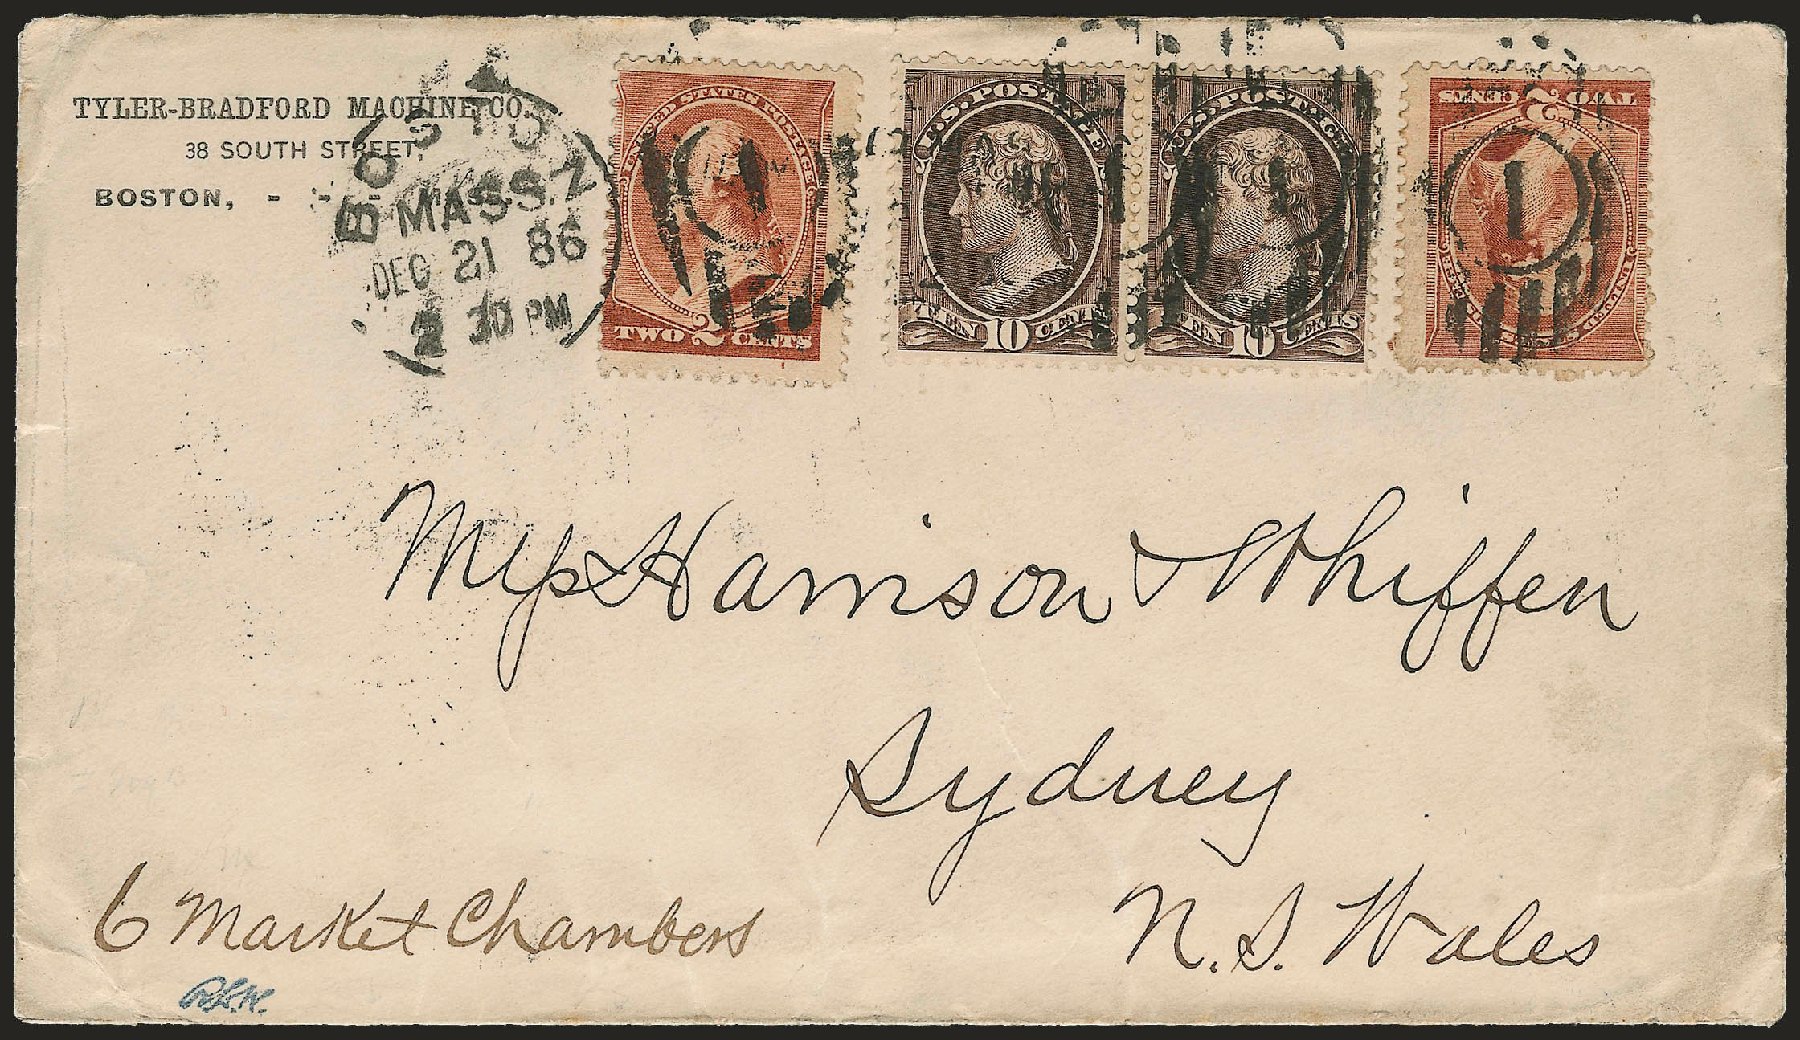 TYLER-BRADFORD MACHINE CO.
38 SOUTH STREET,
BOSTON, - - - Mass.
BOSTON
MASS.
DEC 21 86
2 30 PM
1
UNITED STATES POSTAGE
TWO 2 CENTS
U.S. POSTAGE
TEN 10 CENTS
U.S. POSTAGE
TEN 10 CENTS
1
TWO 2 CENTS
UNITED STATES
1
Harrison & Whiffen
Sydney
N. S. Wales
6 Market Chambers